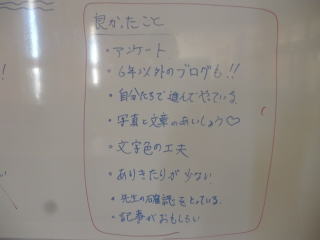 良かったこと
・アンケート
・6年以外のブログも!!
・自分たちで進んでやっている。
・写真と文章のあいしょう♡
・文字色の工夫
・ありきたりが少ない
・先生の確認をとっている。
・記事がおもしろい